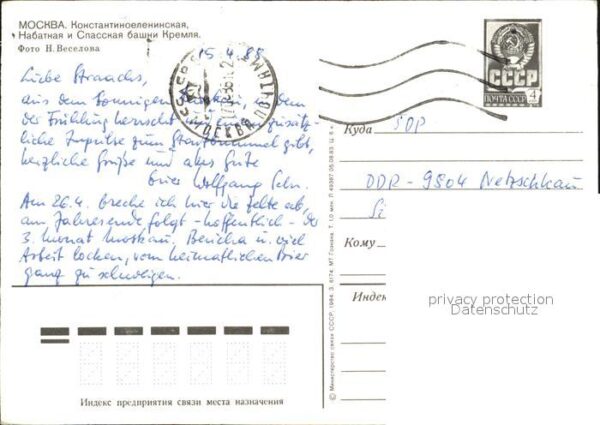 МОСКВА. Константиноеленинская,
Набатная и Спасская башни Кремля.
Фото Н. Веселова
15.4.85
Liebe Straachs,
aus dem sonnigen Moskau, in dem
der Frühling herrscht und einem zusätz-
liche Impulse zum Stadtbummel gibt,
herzliche Grüße und alles Gute
Euer Wolfgang
Am 26.4. breche ich hier die Zelte ab,
am Jahresende folgt - hoffentlich - der
3. Monat Moskau. Berichte u. viel
Arbeit locken, vom heimatlichen Bier
ganz zu schweigen.
СССР
ПОЧТА СССР 4
МОСКВА
Куда
DDR
DDR - 9804 Netzschkau
Кому
Индекс предприятия связи места назначения
© Министерство связи СССР. 1984. З. 6174. МТ Гознака. Т. 1,0 млн.
privacy protection
Datenschutz